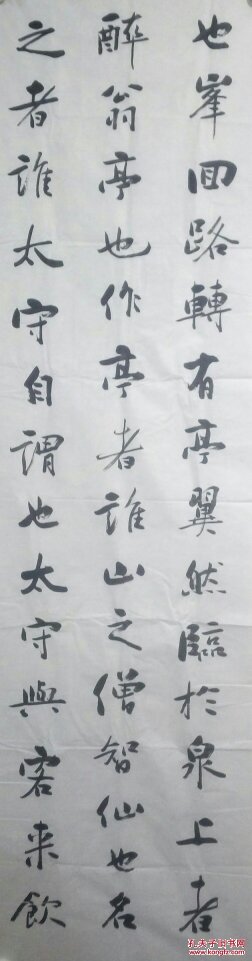 也峯回路轉有亭翼然臨於泉上者
醉翁亭也作亭者誰山之僧智仙也名
之者誰太守自謂也太守與客来飲
孔夫子旧书网
www.kongfz.com